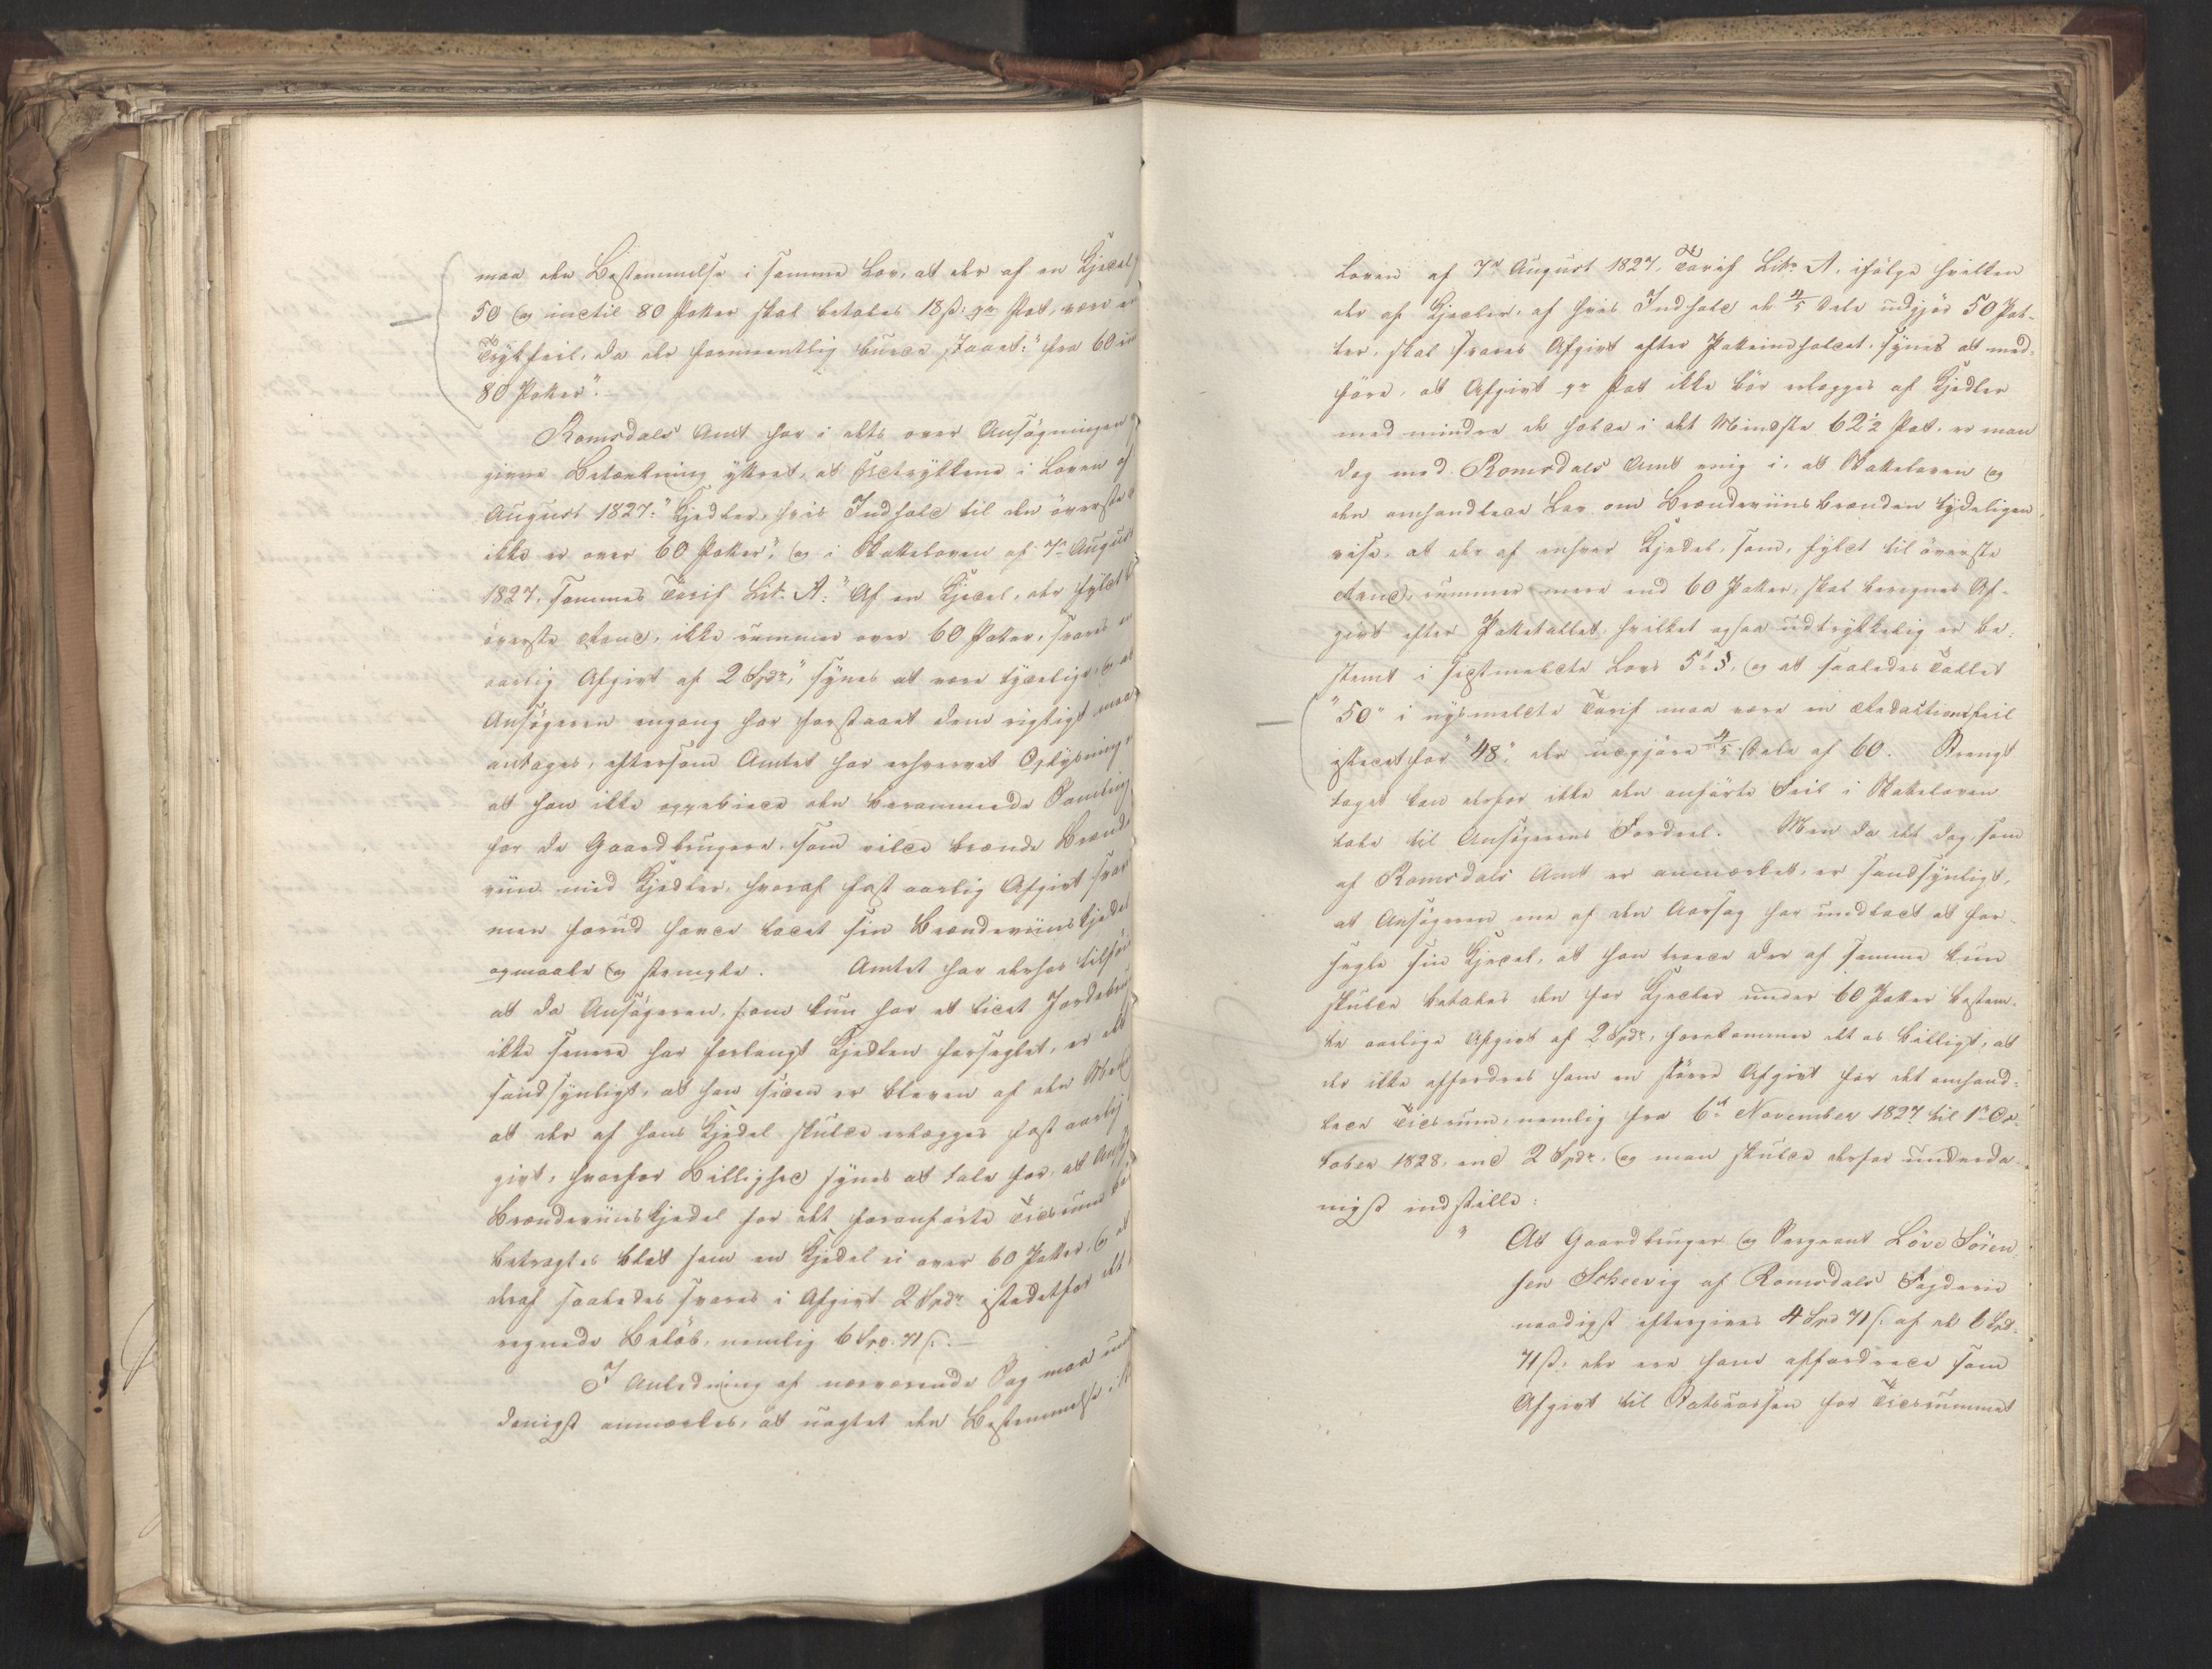 maa den Bestemmelse i samme Lov, at der af en Kjedel
50 og indtil 80 Potter skal betales 18 ß: pr Pot, være en
Trykfeil, da der formeentlig burde staaet: "fra 60 in
80 Potter".
Romsdals Amt har i dets over Ansøgningen
givne Betænkning yttret, at Udtrykkene i Loven af
August 1827: "Kjedler, hvis Indhold til den øverste
ikke er over 60 Potter", og i Skatteloven af 7de August
1827, sammes Tarif Lit. A: "Af en Kjedel, der fyldt
øverste Rand, ikke rummer over 60 Potter, svares en
aarlig Afgivt af 2 Spdr," synes at være tydelige, og at
Ansøgeren engang har forstaaet dem rigtigt maa
antages, eftersom Amtet har erhvervet Oplysning
at han ikke oppebiede den berammede Samling
for de Gaardbrugere, som vilde brænde Brænde
viin med Kjedler, hvoraf fast aarlig Afgivt svar
men forud havde ladet sin Brændeviinskjedel
opmaale og stemple. Amtet har derhos tilføi
at da Ansøgeren, som kun har et lidet Jordebru
ikke senere har forlangt Kjedlen forseglet, er det
sandsynligt, at han siden er bleven af den Me
at der af hans Kjedel skulde erlægges fast aarlig
givt, hvorfor Billighed synes at tale for, at Ansø
Brændeviinskjedel for det foranførte Tidsrum
betragtes blot som en Kjedel ei over 60 Potter, og at
deraf saaledes svares i Afgivt 2 Spdr istedetfor det
regnede Beløb, nemlig 6 Spd. 71 ß.
I Anledning af nærværende Sag maa un
danigst anmærkes, at uagtet den Bestemmelse i
Loven af 7de August 1827, Tarif Litr A, ifølge hvilken
der af Kjedler, af hvis Indhold de 4/5 Dele udgjør 50 Pot-
ter, skal svares Afgivt efter Potteindholdet, synes at med-
føre, at Afgivt pr Pot ikke bør erlægges af Kjedler
med mindre de holde i det Mindste 62 1/2 Pot, er man
dog med Romsdals Amt enig i, at Skatteloven og
den omhandlede Lov om Brændeviinsbrænden tydeligen
vise, at der af enhver Kjedel, som, fyldt til øverste
Rand, rummer mere end 60 Potter, skal beregnes Af-
givt efter Pottetallet, hvilket ogsaa udtrykkelig er be-
stemt i sidstmeldte Lovs 5 §, og at saaledes Tallet
"50" i nysmeldte Tarif maa være en Redactionsfeil
istedetfor "48", der udgjøre 4/5 Dele af 60. Strengt
taget kan derfor ikke den anførte Feil i Skatteloven
tale til Ansøgerens Fordeel. Men da det dog, som
af Romsdals Amt er anmærket, er sandsynligt,
at Ansøgeren ene af den Aarsag har undladt at for-
segle sin Kjedel, at han troede der af samme kun
skulde betales den for Kjedler under 60 Potter bestem-
te aarlige Afgivt af 2 Spdr, forekommer det os billigt, at
der ikke affordres ham en større Afgivt for det omhand-
lede Tidsrum, nemlig fra 6te November 1827 til 1ste Oc-
tober 1828, end 2 Spdr, og man skulde derfor underda-
nigst indstille:
" At Gaardbruger og Sergeant Løve Sören-
sen Scheevig af Romsdals Fogderie
naadigst eftergives 4 Spd 71 ß. af de 6 Spd.
71 ß, der ere ham affordrede som
Afgivt til Statscassen for Tidsrummet